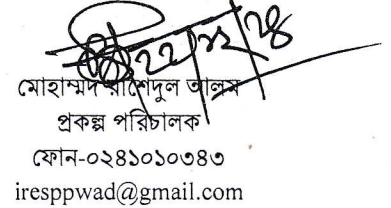 মোহাম্মদ রাশেদুল আলম
প্রকল্প পরিচালক
ফোন-০২৪১০১০৩৪৩
iresppwad@gmail.com